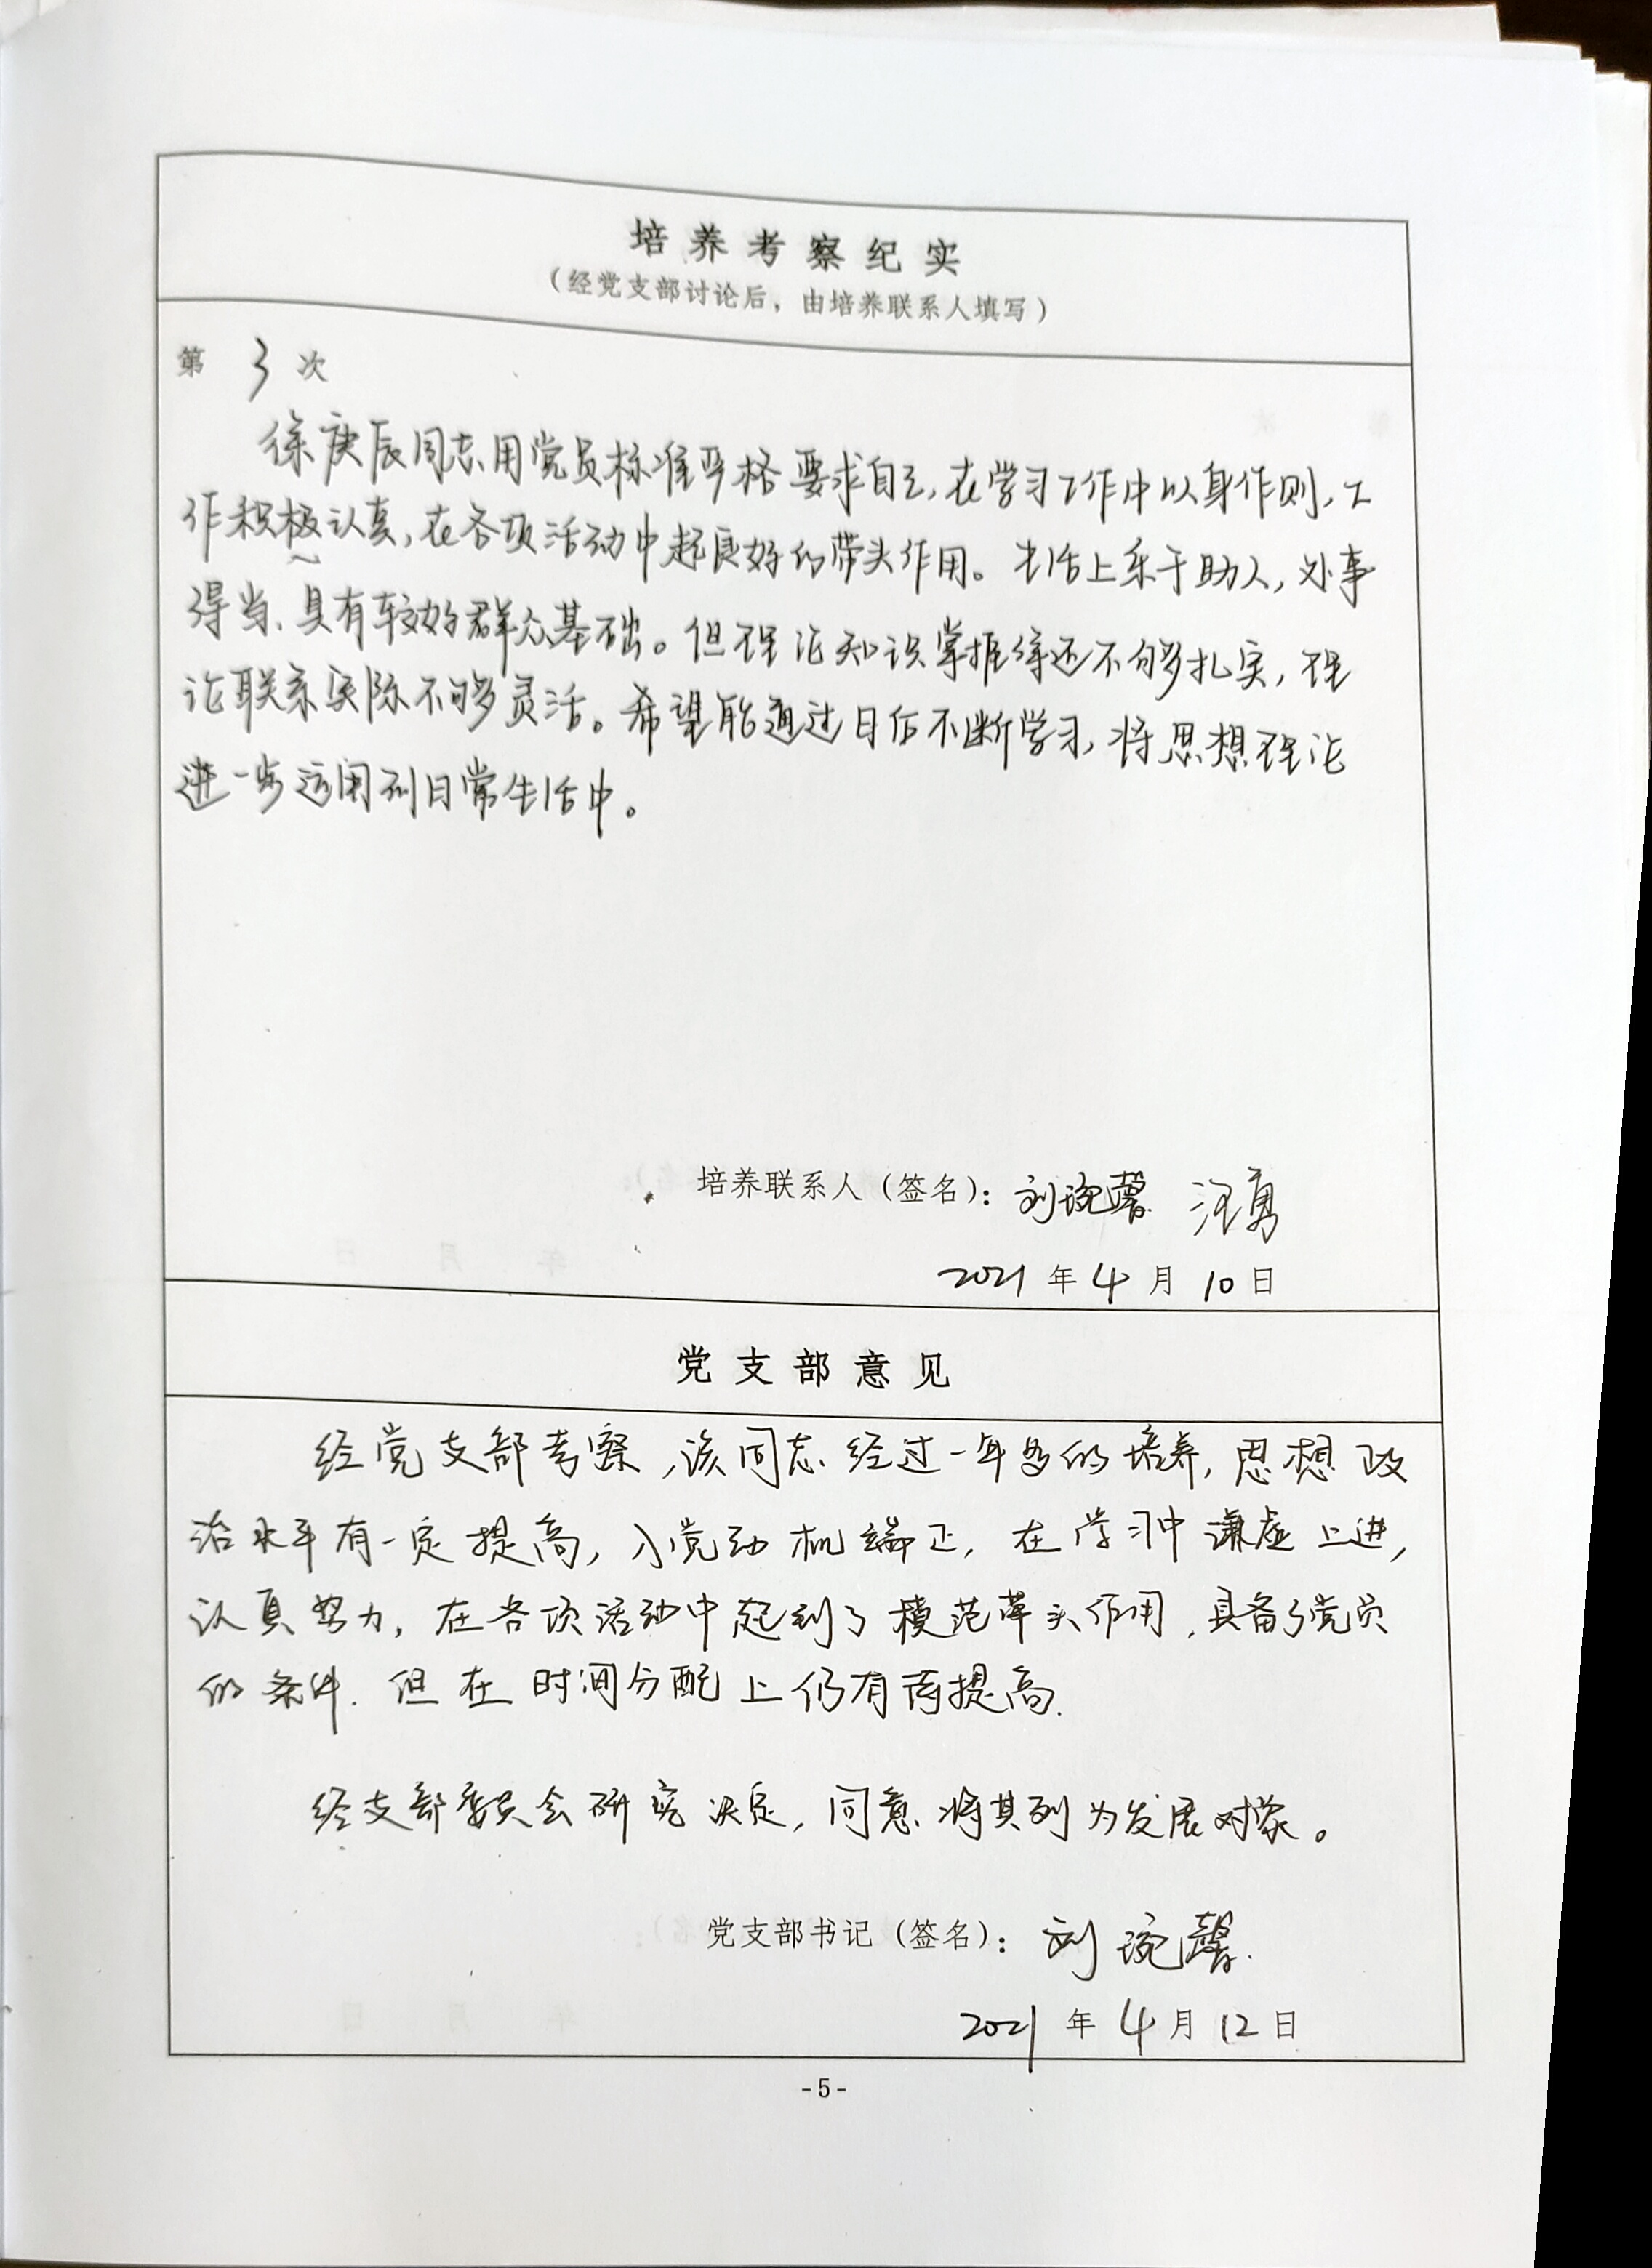 培养考察纪实
（经党支部讨论后，由培养联系人填写）
第 3 次
徐庚辰同志用党员标准严格要求自己,在学习工作中以身作则,工
作积极认真,在各项活动中起良好的带头作用。生活上乐于助人,处事
得当、具有较好群众基础。但理论知识掌握得还不够扎实,理
论联系实际不够灵活。希望能通过日后不断学习,将思想理论
进一步运用到日常生活中。
培养联系人（签名）：刘琬馨 汪勇
2021 年 4 月 10 日
党支部意见
经党支部考察,该同志经过一年多的培养,思想政
治水平有一定提高,入党动机端正,在学习中谦虚上进,
认真努力,在各项活动中起到了模范带头作用,具备了党员
的条件.但在时间分配上仍有待提高.
经支部委员会研究决定,同意将其列为发展对象。
党支部书记（签名）：刘琬馨.
2021 年 4 月 12 日
-5-